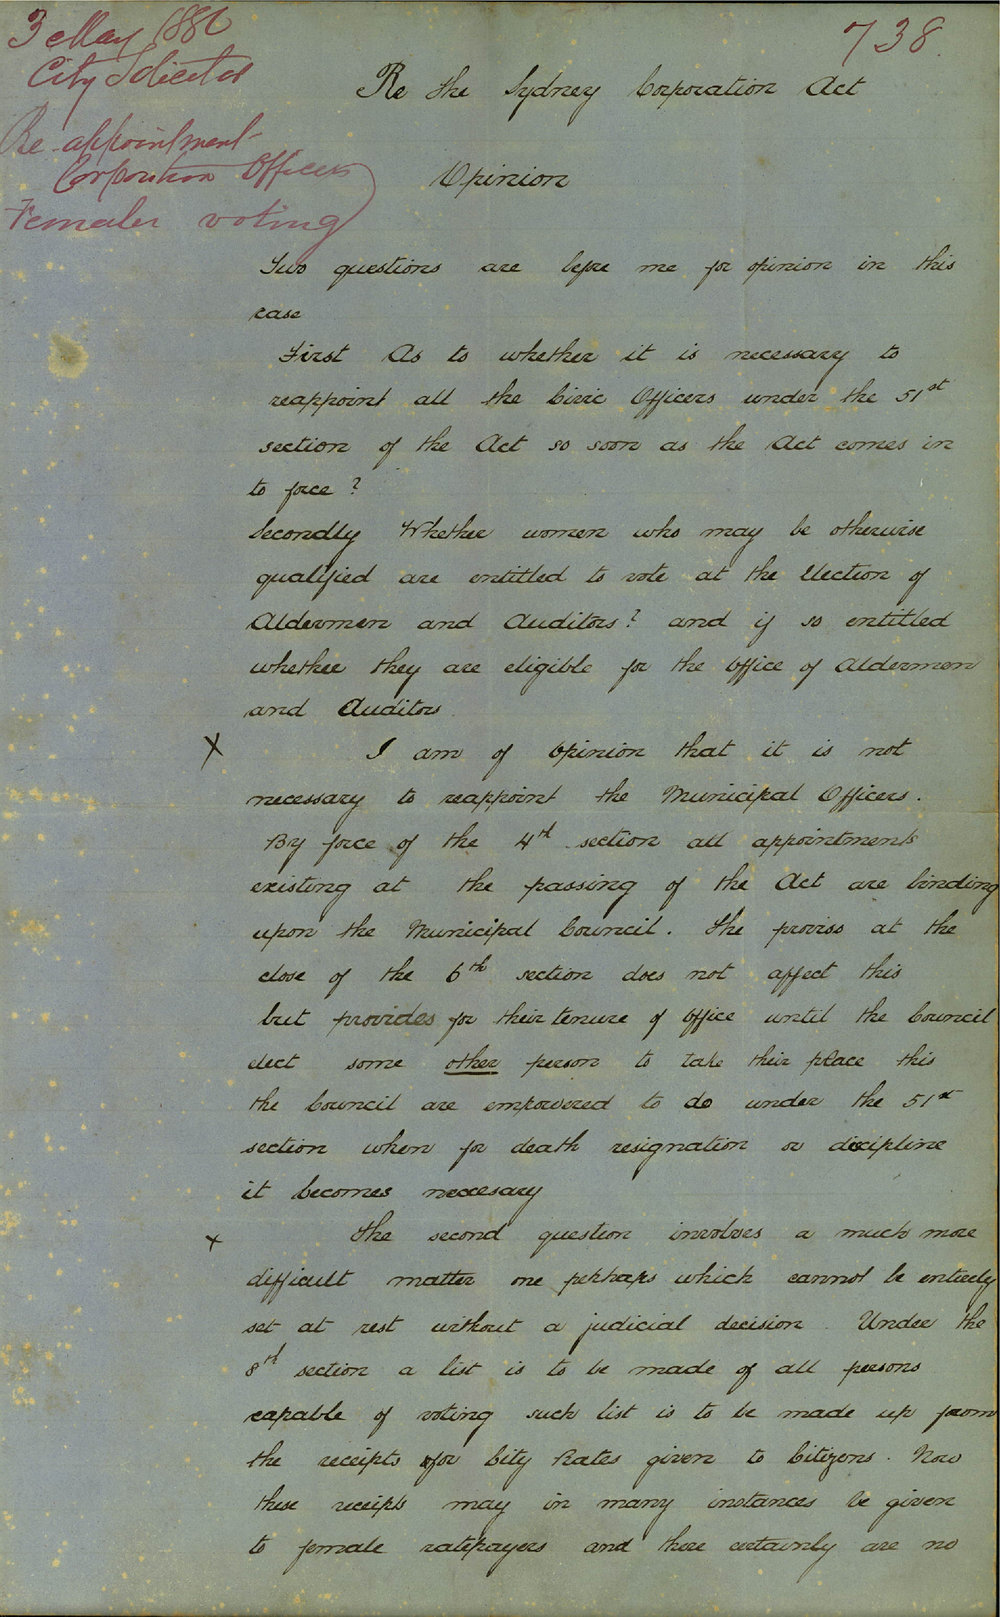 3 May 1880
City Solicitor
738
Re appointment
Corporation Officers
Females voting
Re the Sydney Corporation Act
Opinion
Two questions are before me for opinion in this
case
First As to whether it is necessary to
reappoint all the Civic Officers under the 51st
section of the Act so soon as the Act comes in
to force ?
Secondly Whether women who may be otherwise
qualified are entitled to vote at the Election of
Aldermen and Auditors? and if so entitled
whether they are eligible for the Office of Aldermen
and Auditors
X I am of Opinion that it is not
necessary to reappoint the Municipal Officers.
By force of the 4th section all appointments
existing at the passing of the Act are binding
upon the Municipal Council. The proviso at the
close of the 6th section does not affect this
but provides for their tenure of office until the Council
elect some other person to take their place this
the Council are empowered to do under the 51st
section when for death resignation or discipline
it becomes neccesary
x The second question involves a much more
difficult matter one perhaps which cannot be entirely
set at rest without a judicial decision. Under the
8th section a list is to be made of all persons
capable of voting such list is to be made up from
the receipts for City Rates given to Citizens. Now
these receipts may in many instances be given
to female ratepayers and there certainly are no